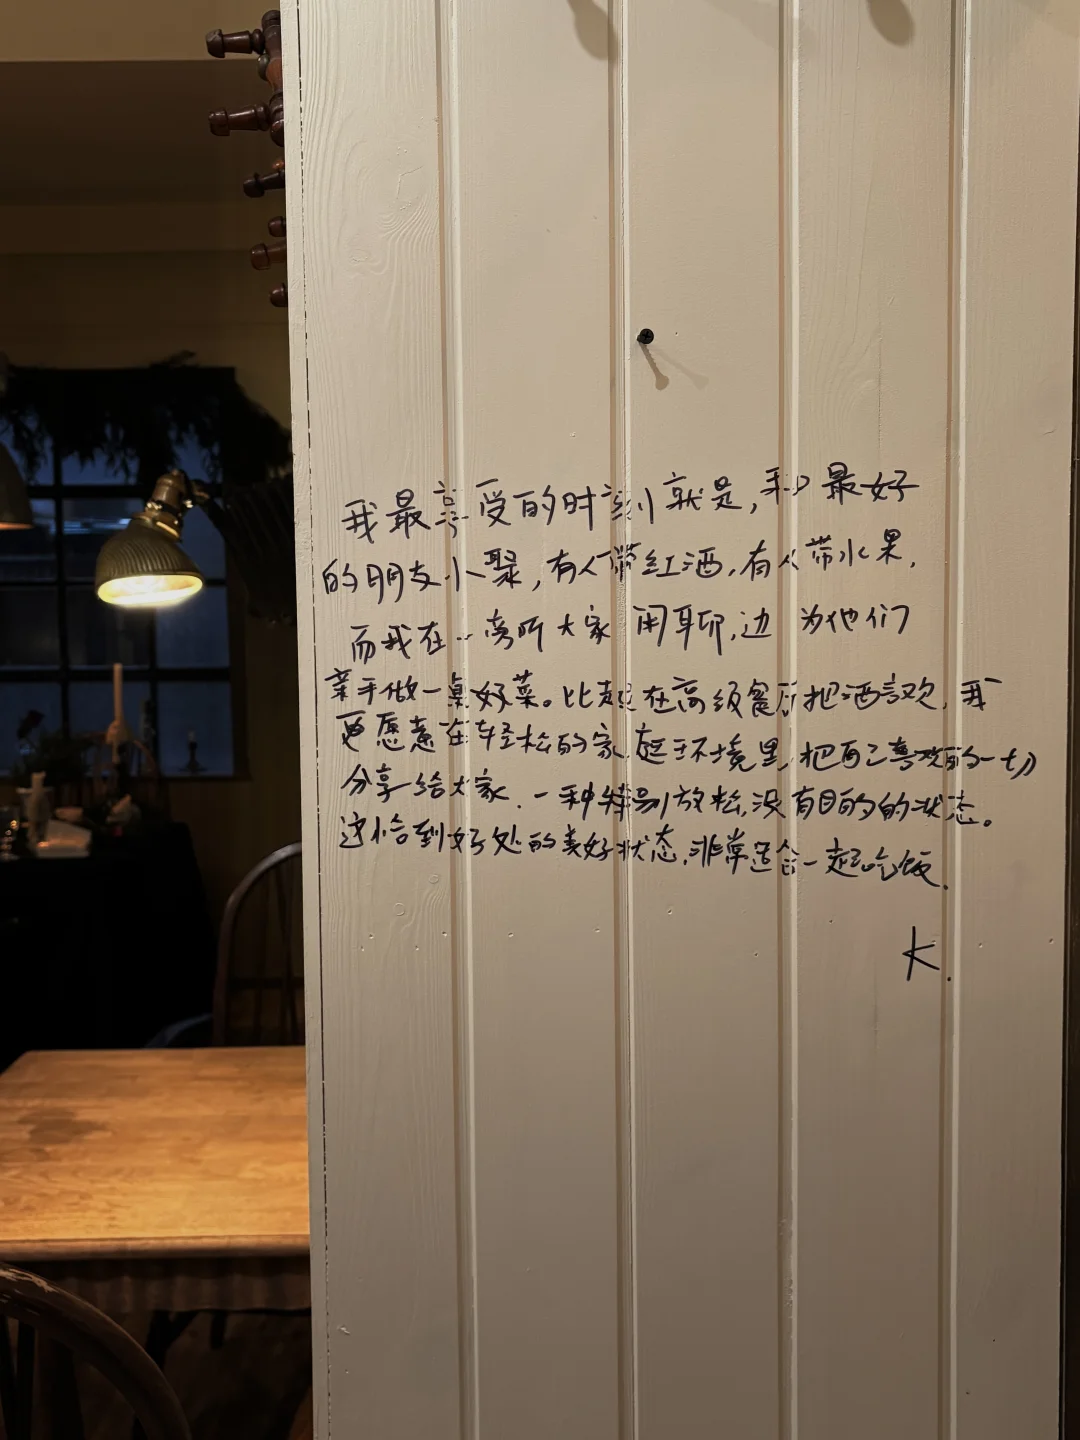 我最享受的时刻就是,和最好
的朋友小聚,有人带红酒,有人带水果,
而我在一旁听大家闲聊,边为他们
亲手做一桌好菜。比起在高级餐厅把酒言欢,我
更愿意在轻松的家庭环境里,把自己喜欢的一切
分享给大家.一种特别放松,没有目的的状态。
这恰到好处的美好状态,非常适合一起吃饭.
K.